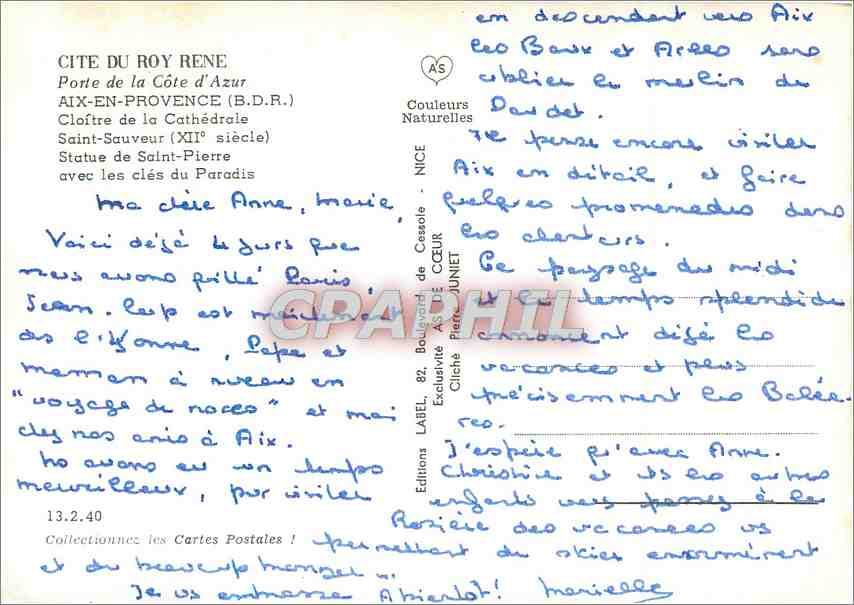 CITE DU ROY RENE
Porte de la Côte d'Azur
AIX-EN-PROVENCE (B.D.R.)
Cloître de la Cathédrale
Saint-Sauveur (XIIe siècle)
Statue de Saint-Pierre
avec les clés du Paradis
AS
Couleurs
Naturelles
Editions LABEL, 82, Boulevard de Cessole - NICE
Exclusivité AS DE CŒUR
Cliché Pierre JUNIET
Ma chère Anne, Marie,
Voici déjà jours que
nous avons quitté Paris,
Jean. Loup est maintenant
ds l'Yonne, Papa et
maman à nveau en
"voyage de noces" et moi
chez nos amis à Aix.
ns avons eu un temps
merveilleux, pr visiter
en descendant vers Aix
les Baux et Arles sans
oublier le moulin de
Daudet.
Je pense encore visiter
Aix en détail, et faire
quelques promenades dans
les alentours.
Le paysage du midi
et le temps splendide
annoncent déjà les
vacances et plus
précisemment les Baléa-
res.
J'espère qu'avec Anne.
Christine et ts les autres
enfants vous passez à la
Rosière des vacances vs
permettant de skier enormément
et de beaucoup manger...
Je vs embrasse A bientot! Marielle
13.2.40
Collectionnez les Cartes Postales !
CPAPHIL